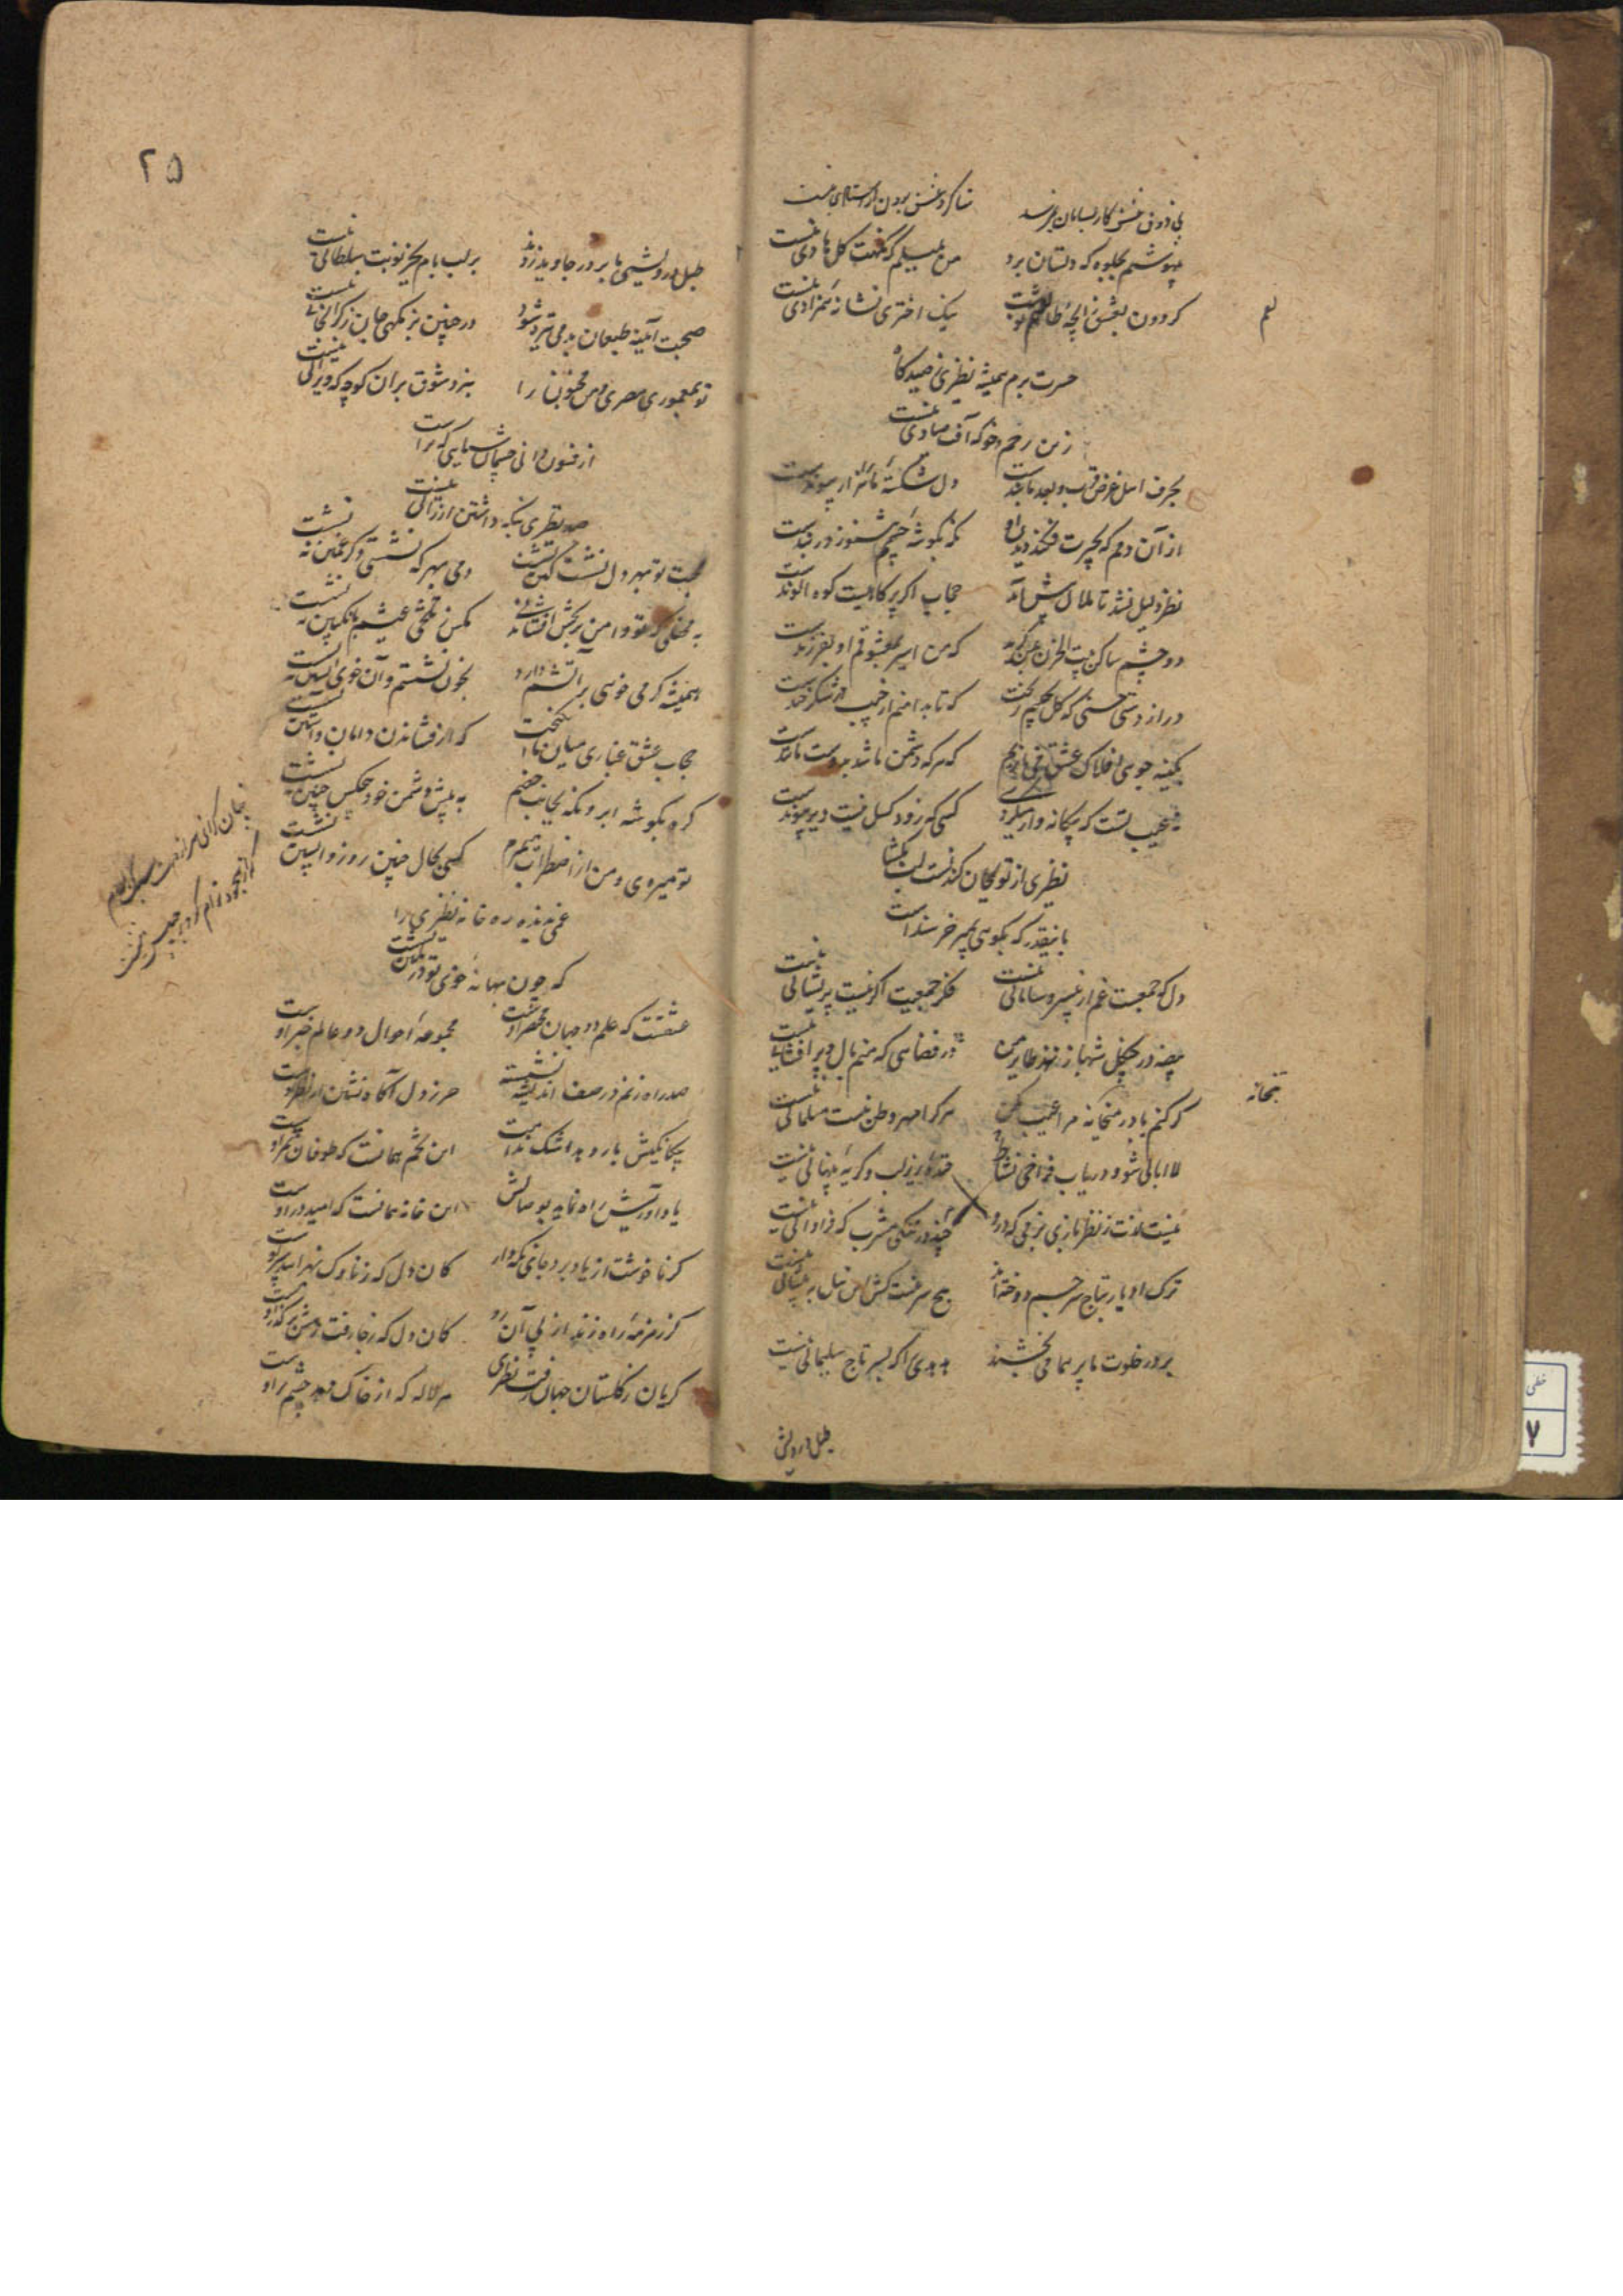 بی ذوق عشق کار بسامان نمیرسد شاگرد عشق بودن و استادی نیست
بیهوشم بجلوه که دستان برد من بلبلم که نکهت گل هادی نیست
گردون بعشق زایچه طالعم نوشت نیک اختری نشانه همزادی نیست
حسرت برم همیشه نظیری ز صیدگاه
زین زخم دخو که آفت صیادی نیست
بحرف اهل غرض قرب و بعد ما بندست دل شکسته ما را هزار پیوندست
از آن دم که بحیرت فکند دیدن او نگه بگوشه چشمم هنوز در بندست
نظر دلیل نشد تا ملال پیش آمد حجاب اگر پر کاهیست کوه الوندست
دو چشم ساکن بیت الحزن بمن گرید که من اسیر بمعشوقم او بفرزندست
دراز دستی حسنی که گل بجیبم ریخت که تا بدامنم از جیب در شکرخندست
بکینه جوئی افلاک عشق می بازیم که هر که دشمن ما شد بدوست مانندست
نه عجیب تست که بیگانه وار میگذرد کسی که زود گسل نیست دیر پیوندست
نظیری از تو بجان کندنست لب بگشا
باینقدر که بگوئی بمیر خرسندست
دل که جمعست غم از بی سر و سامانی نیست فکر جمعیت اگر نیست پریشانی نیست
بیضه در چنگل شهباز نهد طایر من در فضائی که منم بال و پر افشانی نیست
گر کنم یاد در میخانه مرا عیب مکن هر کرا مهر وطن نیست مسلمانی نیست
بتخانه
لاابالی شو و دریاب فراخی نشاط خنده زیر لب و گریه پنهانی نیست
نیست لذت ز نظر بازی بزمی که درو خنده در تنگی مشرب که فراوانی نیست
ترک ادبار بتاج سر جم دوخته‌اند هیچ سر نیست کش این نیل به پیشانی نیست
بر در خلوت ما پر هما می بخشند هدهدی را که بسر تاج سلیمانی نیست
طبل درویش
۲۵
طبل درویشی ما بر در جاوید زدند بر لب بام بجز نوبت سلطانی نیست
صحبت آینه طبعان بدمی تیره شود در چنین بزمگهی جای گرانجانی نیست
تو بمعموری مصری و من مجنون را برد شوق بران کوچه که ویرانی نیست
از فسون دانی چشمان سیاهی که تراست
صد نظیری نگه داشتن ارزانی نیست
محبت تو بهر دل نشست کین ننشست دمی بمهر که ننشستی و که غمین ننشست
به محفلی که تو دامن برنجش افشاندی مگس ز تلخی عیشم بانگبین ننشست
همیشه گرمی خوئی بر آتشم دارد بخون نشستم و آن خوی آتشین ننشست
حجاب عشق غباری میان ما انگیخت که از فشاندن دامان و آستین ننشست
گره بگوشه ابرو نگه بجانب خصم به پیش دشمن خود هیچکس چنین ننشست
تو میروی و من از اضطراب میمیرم کسی بحال چنین روز واپسین ننشست
غمی ندیده ره خانه نظیری را
که چون بهانه خوی تو در کمین ننشست
عشقست که علم دو جهان مختصر اوست مجموعه احوال دو عالم خبر اوست
صد راه زنم در صف اندیشه نشسته حرز دل آگاه نشان از نظر اوست
پیکانکیش بارد بد اشک ندامت این تخم همانست که طوفان ثمر اوست
یاد آور بیش راه نماید بوصالش این خانه همانست که امید در اوست
گر ناخوشت از یاد برد جای نگه دار کان دل که ز ناوک نهراسد سپر اوست
گر زمزمه راه زند از پی آن رو کان دل که ز جا رفت
گریان ز گلستان جهان رفت نظیری هر لاله که از خاک دمد چشم تر اوست